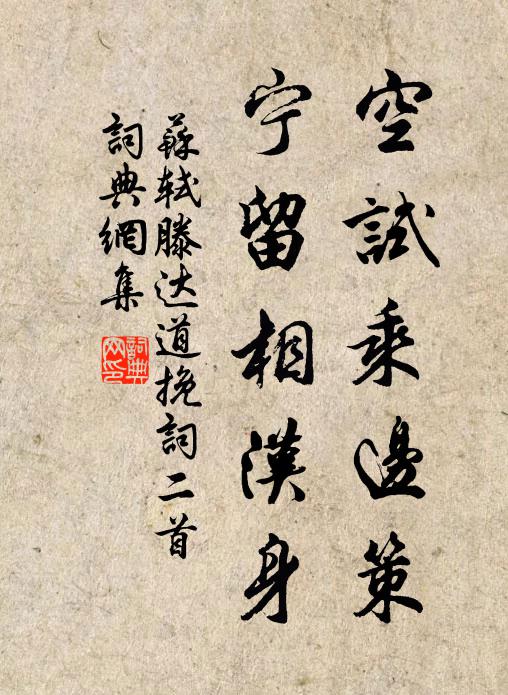 空試乘邊策
宁留相漢身
蘇軾滕达道挽詞二首
詞典網集
詞典
网印